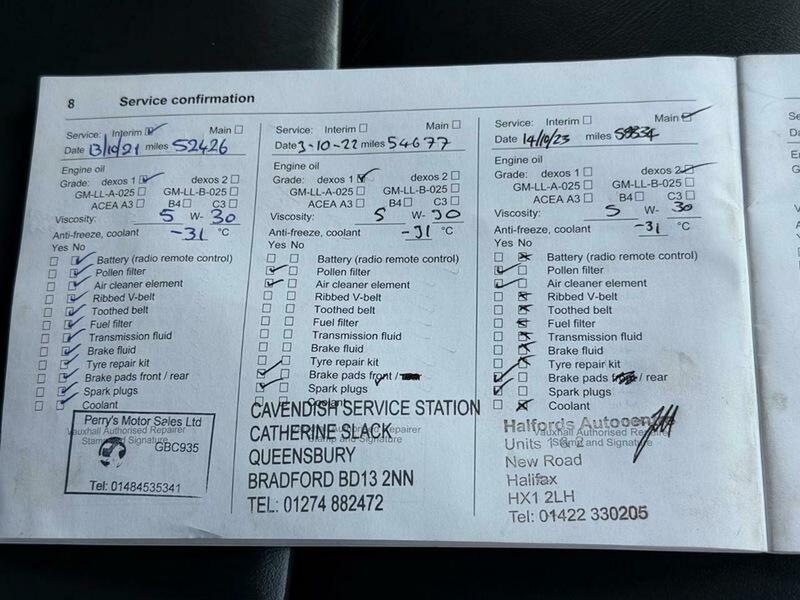 8 Service confirmation
Service: Interim Main
Date 13/10/21 miles 52426
Engine oil
Grade: dexos 1 dexos 2
GM-LL-A-025 GM-LL-B-025
ACEA A3 B4 C3
Viscosity: 5 W- 30
Anti-freeze, coolant -31 °C
Yes No
Battery (radio remote control)
Pollen filter
Air cleaner element
Ribbed V-belt
Toothed belt
Fuel filter
Transmission fluid
Brake fluid
Tyre repair kit
Brake pads front / rear
Spark plugs
Coolant
Perry's Motor Sales Ltd
Vauxhall Authorised Repairer
Stamp and Signature
GBC935
Tel: 01484535341
Service: Interim Main
Date 3-10-22 miles 54677
Engine oil
Grade: dexos 1 dexos 2
GM-LL-A-025 GM-LL-B-025
ACEA A3 B4 C3
Viscosity: 5 W- 30
Anti-freeze, coolant -31 °C
Yes No
Battery (radio remote control)
Pollen filter
Air cleaner element
Ribbed V-belt
Toothed belt
Fuel filter
Transmission fluid
Brake fluid
Tyre repair kit
Brake pads front /
Spark plugs
Coolant
CAVENDISH SERVICE STATION
CATHERINE SLACK
QUEENSBURY
BRADFORD BD13 2NN
TEL: 01274 882472
Service: Interim Main
Date 14/10/23 miles
Engine oil
Grade: dexos 1 dexos 2
GM-LL-A-025 GM-LL-B-025
ACEA A3 B4 C3
Viscosity: 5 W- 30
Anti-freeze, coolant -31 °C
Yes No
Battery (radio remote control)
Pollen filter
Air cleaner element
Ribbed V-belt
Toothed belt
Fuel filter
Transmission fluid
Brake fluid
Tyre repair kit
Brake pads / rear
Spark plugs
Coolant
Halfords
Vauxhall Authorised Repairer
Stamp and Signature
Units 1 & 2
New Road
Halifax
HX1 2LH
Tel: 01422 330205